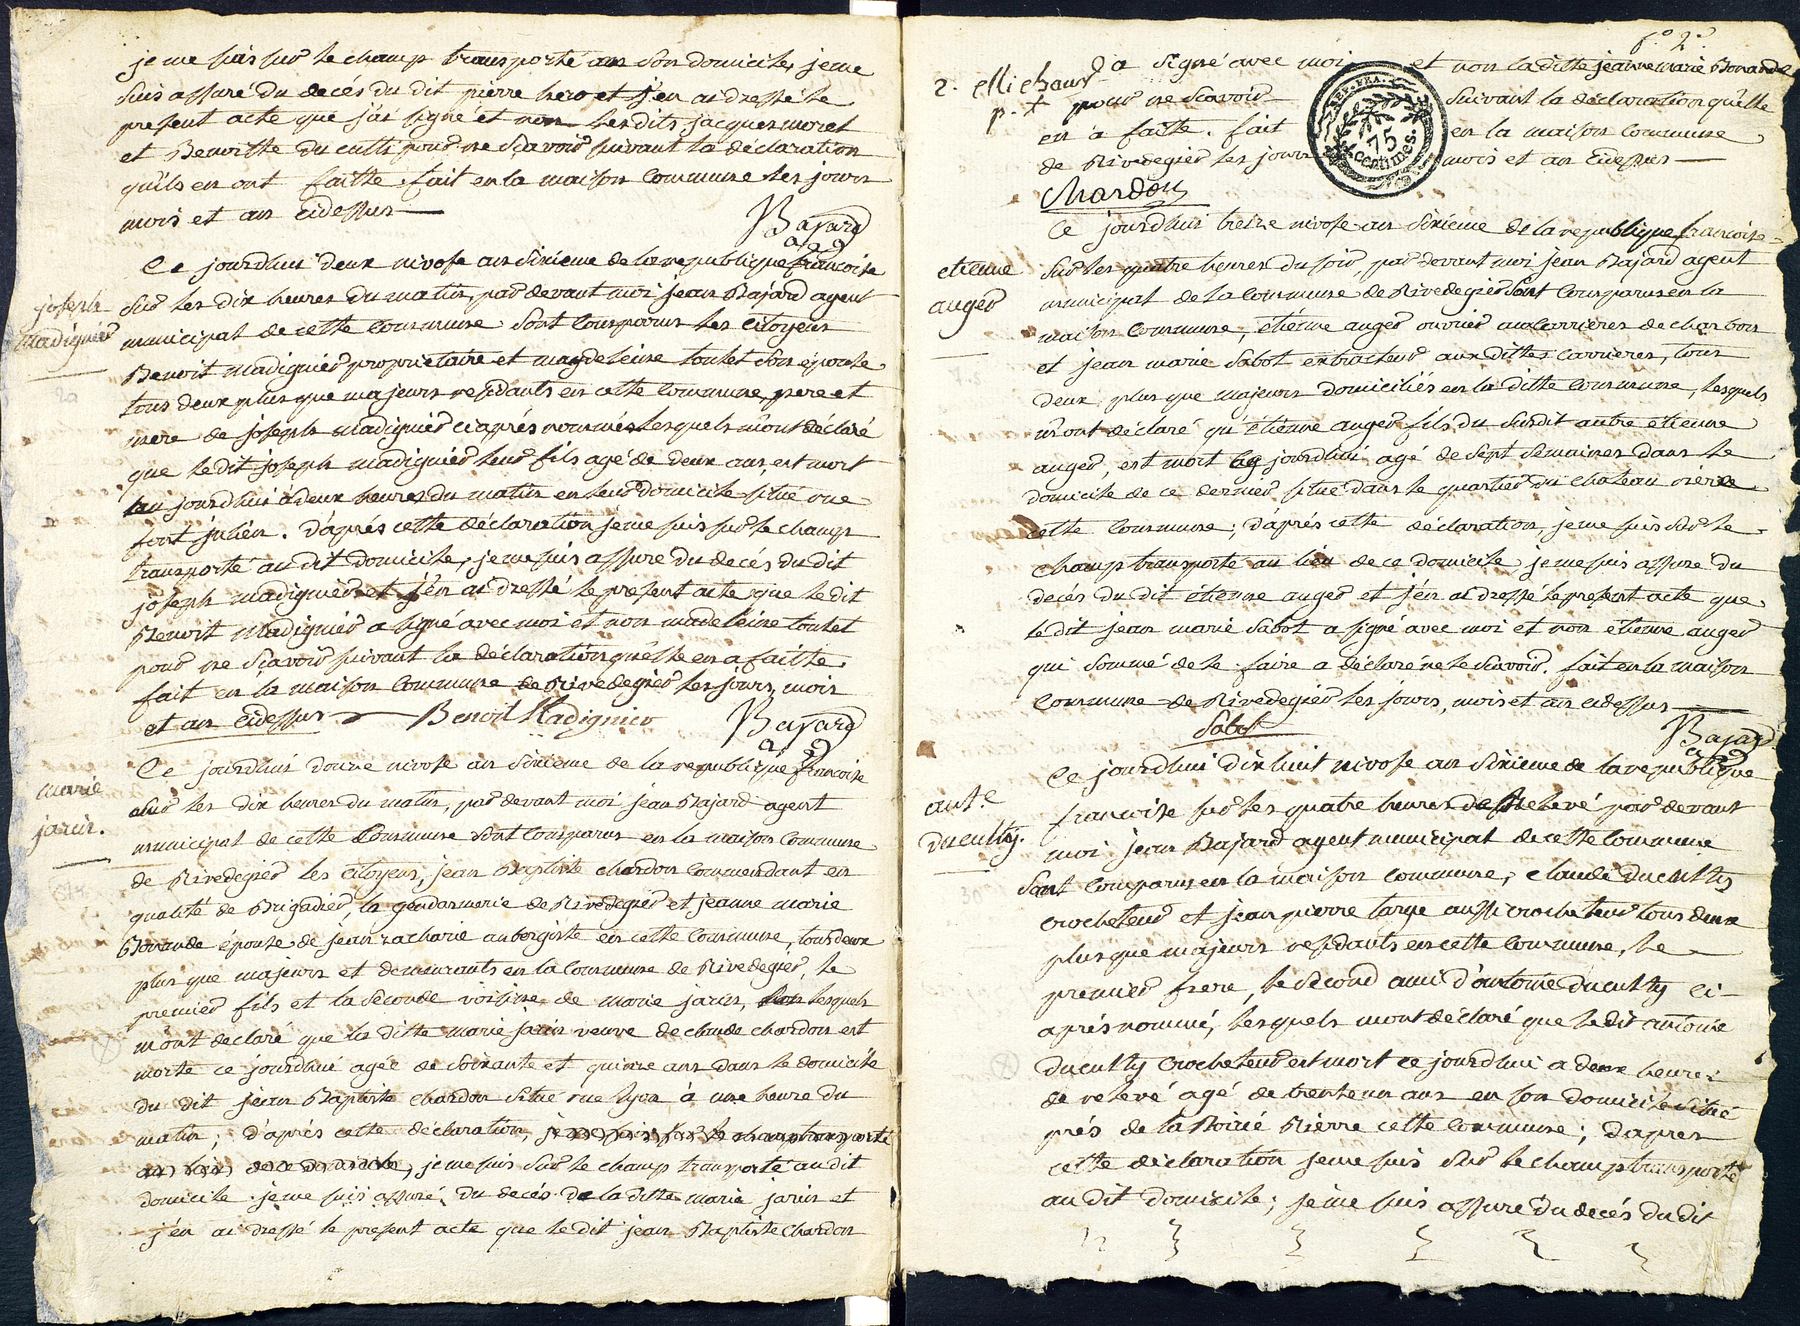 je me suis sur le champ transporté au son domicile, je me
suis assuré du decés du dit pierre hero et j'en ai dressé le
present acte que j'ai signé et non les dits jacques moret
et Benoitte du culti pour ne Scavoir suivant la déclaration
qu'ils en ont faitte. fait en la maison commune les jours
mois et an cidessus
Bajard
Ce jourdhui deux nivose an Sixieme de la republique francoise
joseph
madignier
Sur les dix heures du matin, par devant moi jean Bajard agent
municipal de cette commune sont comparus les citoyens
Benoit madignier proprietaire et magdeleine toulet son épouse
tous deux plus que majeurs residants en cette commune, pere et
mere de joseph madignier ciaprés nommés lesquels m'ont déclaré
que le dit joseph madignier leur fils agé de deux ans, est mort
au jourdhui à deux heures du matin en leur domicile situé rue
fort julien. D'aprés cette déclaration je me suis sur le champ
transporté au dit domicile, je me suis assuré du decés du dit
joseph madignier et j'en ai dressé le present acte que le dit
Benoit madignier a signé avec moi et non madeleine toulet
pour ne Scavoir suivant la déclaration qu'elle en a faitte.
fait en la maison commune de Rivedegier les jours, mois
et an cidessus Benoit Madignier Bajard
Ce jourdhui douze nivose an Sixieme de la republique francoise
marie
jarin.
sur les dix heures du matin, par devant moi jean Bajard agent
municipal de cette commune sont comparus en la maison commune
de Rivedegier les citoyens, jean Baptiste chardon commendant en
qualité de Brigadier, la gendarmerie de Rivedegier et jeanne marie
Bonande épouse de jean zacharie aubergiste en cette commune, tous deux
plus que majeurs et demeurants en la commune de Rivedegier, le
premier fils et la seconde voisine de marie jarin, lesquels
m'ont declaré que la ditte marie jarin veuve de claude chardon est
morte ce jourdhui agée de soixante et quinze ans dans le domicile
du dit jean Baptiste chardon situé rue lyon à une heure du
matin; d'aprés cette déclaration, je me suis sur le champ transporté
au lieu de ce domicile, je me suis sur le champ transporté au dit
domicile. je me suis assuré, du decés de la ditte marie jarin et
j'en ai dressé le present acte que le dit jean Baptiste chardon
f.° 2.°
2.
p.
a signé avec moi et non la ditte jeanne marie Bonande
pour ne scavoir suivant la déclaration qu'elle
en a faite. fait en la maison commune
de Rivedegier les jours mois et an cidessus
REP. FRA.
75
centimes.
Chardon
Ce jourdhui treize nivose an Sixieme de la republique francoise
etienne
auger
Sur les quatre heures du soir, par devant moi jean Bajard agent
municipal de la commune de Rivedegier sont comparus en la
maison commune, étienne auger ouvrier aux carrieres de charbon
et jean marie Sabot extracteur aux dittes carrieres, tous
deux plus que majeurs domiciliés en la ditte commune, lesquels
m'ont déclaré qu'étienne auger fils du susdit autre etienne
auger, est mort ce jourdhui agé de sept semaines dans le
domicile de ce dernier situé dans le quartier du chateau
cette commune; d'aprés cette déclaration, je me suis sur le
champ transporté au lieu de ce domicile je me suis assuré du
decés du dit étienne auger et j'en ai dressé le present acte que
le dit jean marie Sabot a signé avec moi et non étienne auger
qui sommé de le faire a déclaré ne le scavoir. fait en la maison
commune de Rivedegier les jours, mois et an cidessus
Sabot Bajard
Ce jourdhui dix huit nivose an Sixieme de la republique
ant.e
Ducultÿ.
francoise sur les quatre heures de relevé par devant
moi jean Bajard agent municipal de cette commune
sont comparus en la maison commune, claude Ducultÿ
crocheteur et jean pierre large aussi crocheteur tous deux
plus que majeurs residants en cette commune, le
premier frere, le second ami d'antoine Ducultÿ ci-
aprés nommé, lesquels m'ont déclaré que le dit antoine
Ducultÿ crocheteur est mort ce jourdhui a deux heures
de relevé agé de trente un ans en son domicile situé
prés de la Pierre cette commune; d'apres
cette déclaration je me suis sur le champ transporté
au dit domicile; je me suis assuré du decés du dit